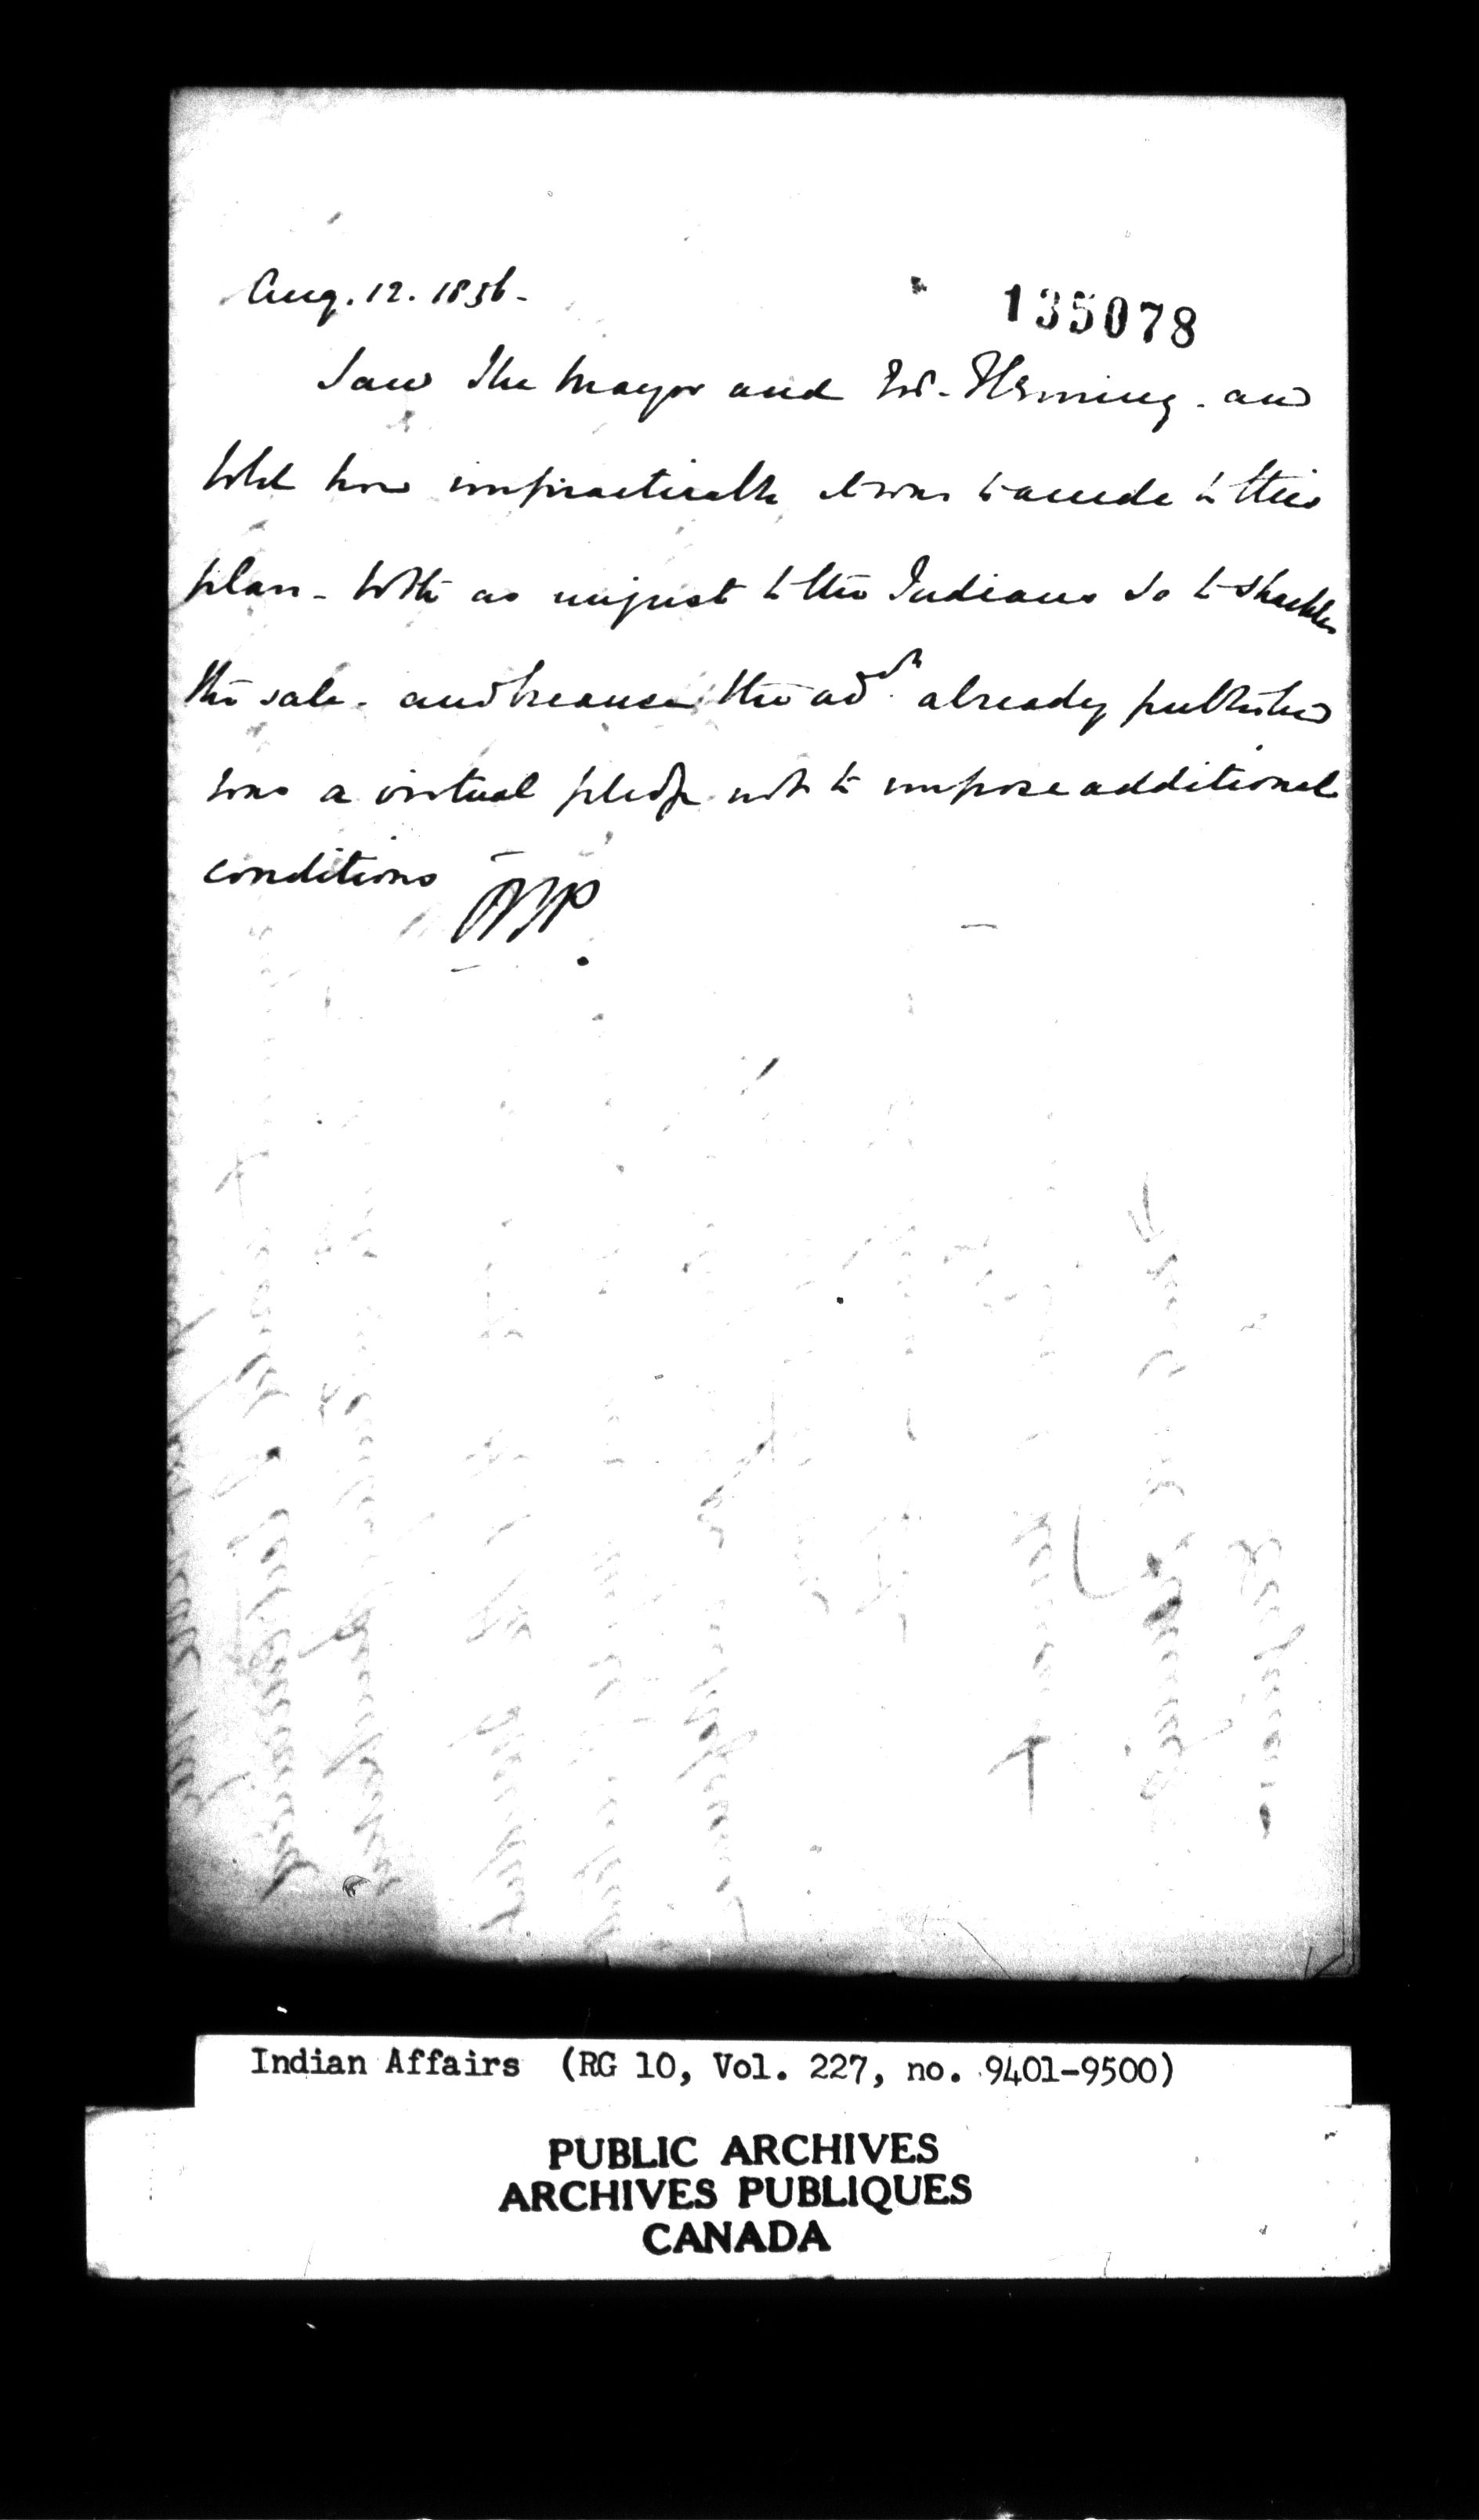 Aug. 12. 1856-
135078
Saw the Mayor and Mr. Fleming - and
told how impracticable it was to accede to this
plan - both as unjust to the Indians so to shackle
the sale - and because the advt. already published
was a virtual pledge not to impose additional
conditions
Indian Affairs (RG 10, Vol. 227, no. 9401-9500)
PUBLIC ARCHIVES
ARCHIVES PUBLIQUES
CANADA